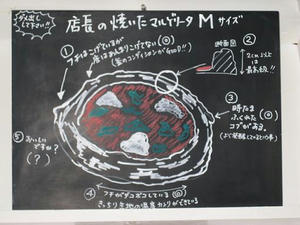 ダメ出し
して下さい!!
店長の焼いたマルゲリータ Mサイズ
① フチはこげているが
底はあんまりこげてない(◎)
(窯のコンディションがGOOD!!)
断面図
②
2cm以上は
最高級!!
③ 時たま
ふくれた
コブがある。(◎)
(よく発酵している証拠)
⑤ おいしい
ですか?
(?)
④ フチがデコボコしている(◎)
きっちり生地の温度カンリができている